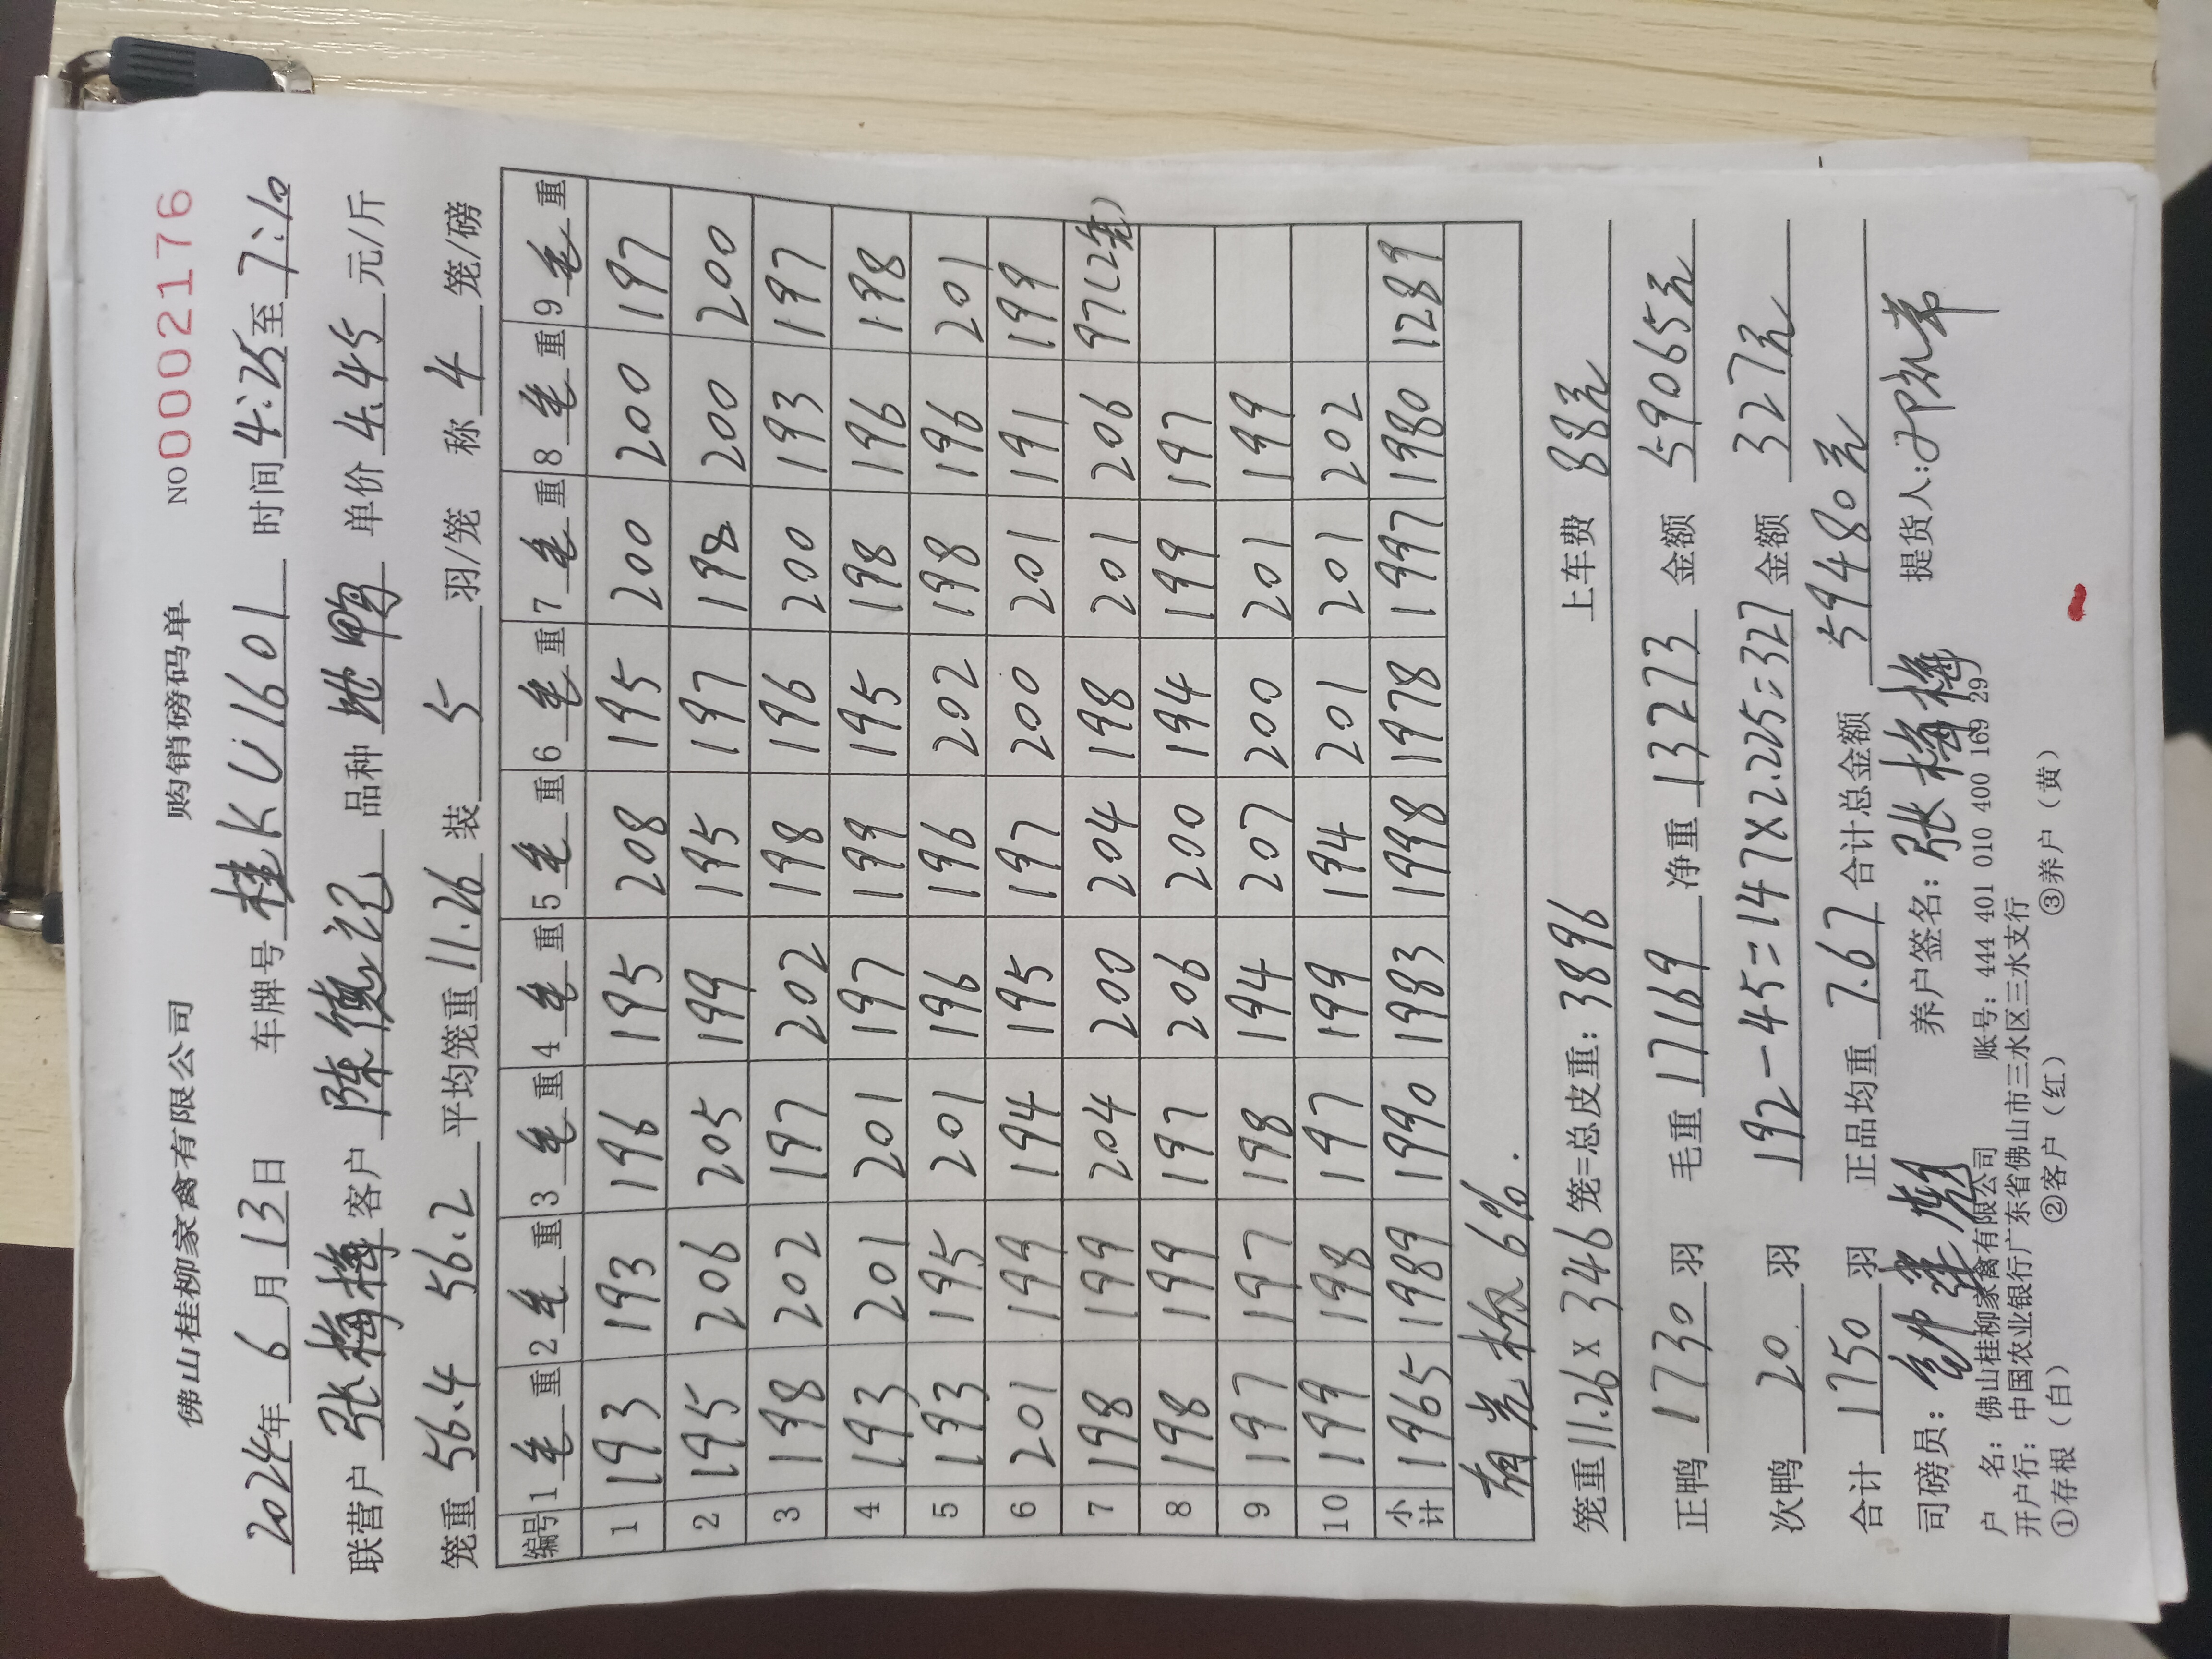 佛山桂柳家禽有限公司 购销磅码单 NO 0002176
2024年 6 月 13 日 车牌号 桂KU1601 时间 4:25 至 7:10
联营户 张梅梅 客户 陈德记 品种 地鸭 单价 4.45 元/斤
笼重 56.4 56.2 平均笼重 11.26 装 5 羽/笼 称 4 笼/磅
编号 1 毛 重 2 毛 重 3 毛 重 4 毛 重 5 毛 重 6 毛 重 7 毛 重 8 毛 重 9 毛 重
1 193 193 196 195 208 195 200 200 197
2 195 206 205 199 195 197 198 200 200
3 198 202 197 202 198 196 200 193 197
4 193 201 201 197 199 195 198 196 198
5 193 195 201 196 196 202 198 196 201
6 201 199 194 195 197 200 201 191 199
7 198 199 204 200 204 198 201 206 97(2笼)
8 198 199 197 206 200 194 199 197
9 197 197 198 194 207 200 201 199
10 199 198 197 199 194 201 201 202
小计 1965 1989 1990 1983 1998 1978 1997 1980 1289
6%.
笼重 11.26 x 346 笼=总皮重: 3896 上车费 88元
正鸭 1730 羽 毛重 17169 净重 13273 金额 59065元
次鸭 20 羽 192-45=147x2.225=327 金额 327元
合计 1750 羽 正品均重 7.67 合计总金额 59480元
司磅员: 养户签名: 张梅梅 提货人:
户 名: 佛山桂柳家禽有限公司 账号: 444 401 010 400 169 29
开户行: 中国农业银行广东省佛山市三水区三水支行
①存根(白) ②客户(红) ③养户(黄)